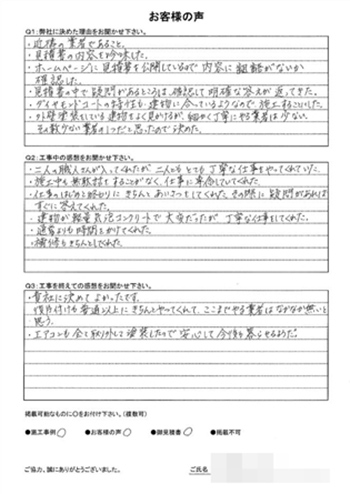 お客様の声
Q1:弊社に決めた理由をお聞かせ下さい。
・近場の業者であること。
・見積書の内容を吟味した。
・ホームページに見積書を公開しているので内容に齟齬がないか
確認した。
・見積書の中で疑問があるところは、確認して明確な答えが返ってきた。
・ダイヤモンドコートの特性も建物に合っているようなので施工することにした。
・外壁塗装している建物をよく見かけるが、細かく丁寧にやる業者は少ない。
その数少ない業者の1つだと思ったので決めた。
Q2:工事中の感想をお聞かせ下さい。
・二人の職人さんが入ってくれたが二人ともとても丁寧な仕事をやってくれていた。
・施工中も無駄話をすることがなく、仕事に専念していてくれた。
・仕事のはじめと終わりにきちんとあいさつをしてくれた。その際に疑問があれば
すぐに答えてくれた。
・建物が軽量気泡コンクリートで大変だったが丁寧な仕事をしてくれた。
・通常よりも時間をかけてくれた。
・補修もきちんとしてくれた。
Q3:工事を終えての感想をお聞かせ下さい。
・貴社に決めてよかったです。
後片付けも普通以上にきちんとやってくれて、ここまでやる業者はなかなか無いと
思う。
・エアコンも全て取り外して塗装したので安心して今後も暮らせるようだ。
掲載可能なものに〇をお付け下さい。(複数可)
●施工事例 〇 ●お客様の声 〇 ●御見積書 〇 ●掲載不可
ご協力、誠にありがとうございました。
ご氏名